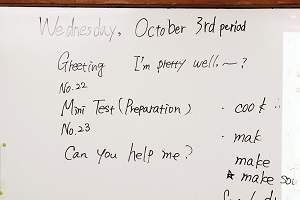 Wednesday, October 3rd period
Greeting I'm pretty well. ~ ?
No.22
Mini Test (Preparation)
No.23
Can you help me?
· cook
· mak
make
★ make sou